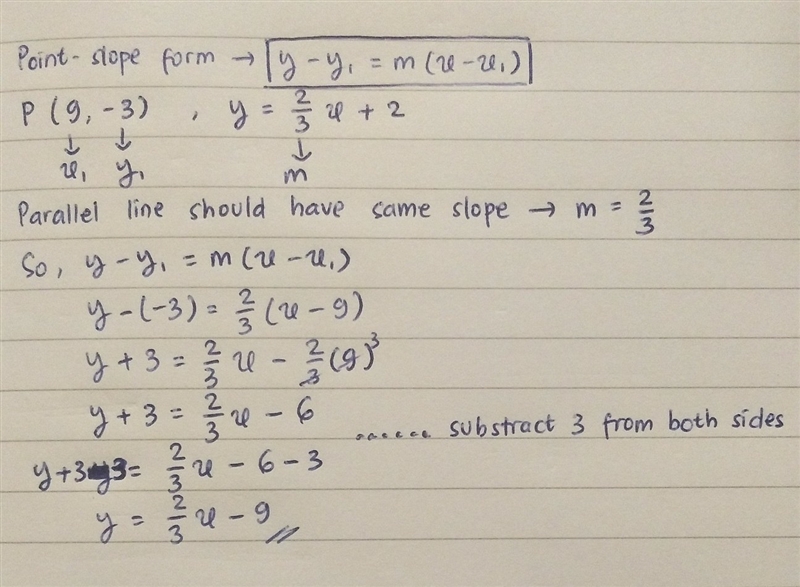 Point-slope form → y - y₁ = m (x - x₁)
P (9, -3) , y = 2/3 x + 2
↓ ↓ ↓
x₁ y₁ m
Parallel line should have same slope → m = 2/3
So, y - y₁ = m (x - x₁)
y - (-3) = 2/3 (x - 9)
y + 3 = 2/3 x - 2/3 (9)³
y + 3 = 2/3 x - 6 ...... substract 3 from both sides
y + 3 - 3 = 2/3 x - 6 - 3
y = 2/3 x - 9 //